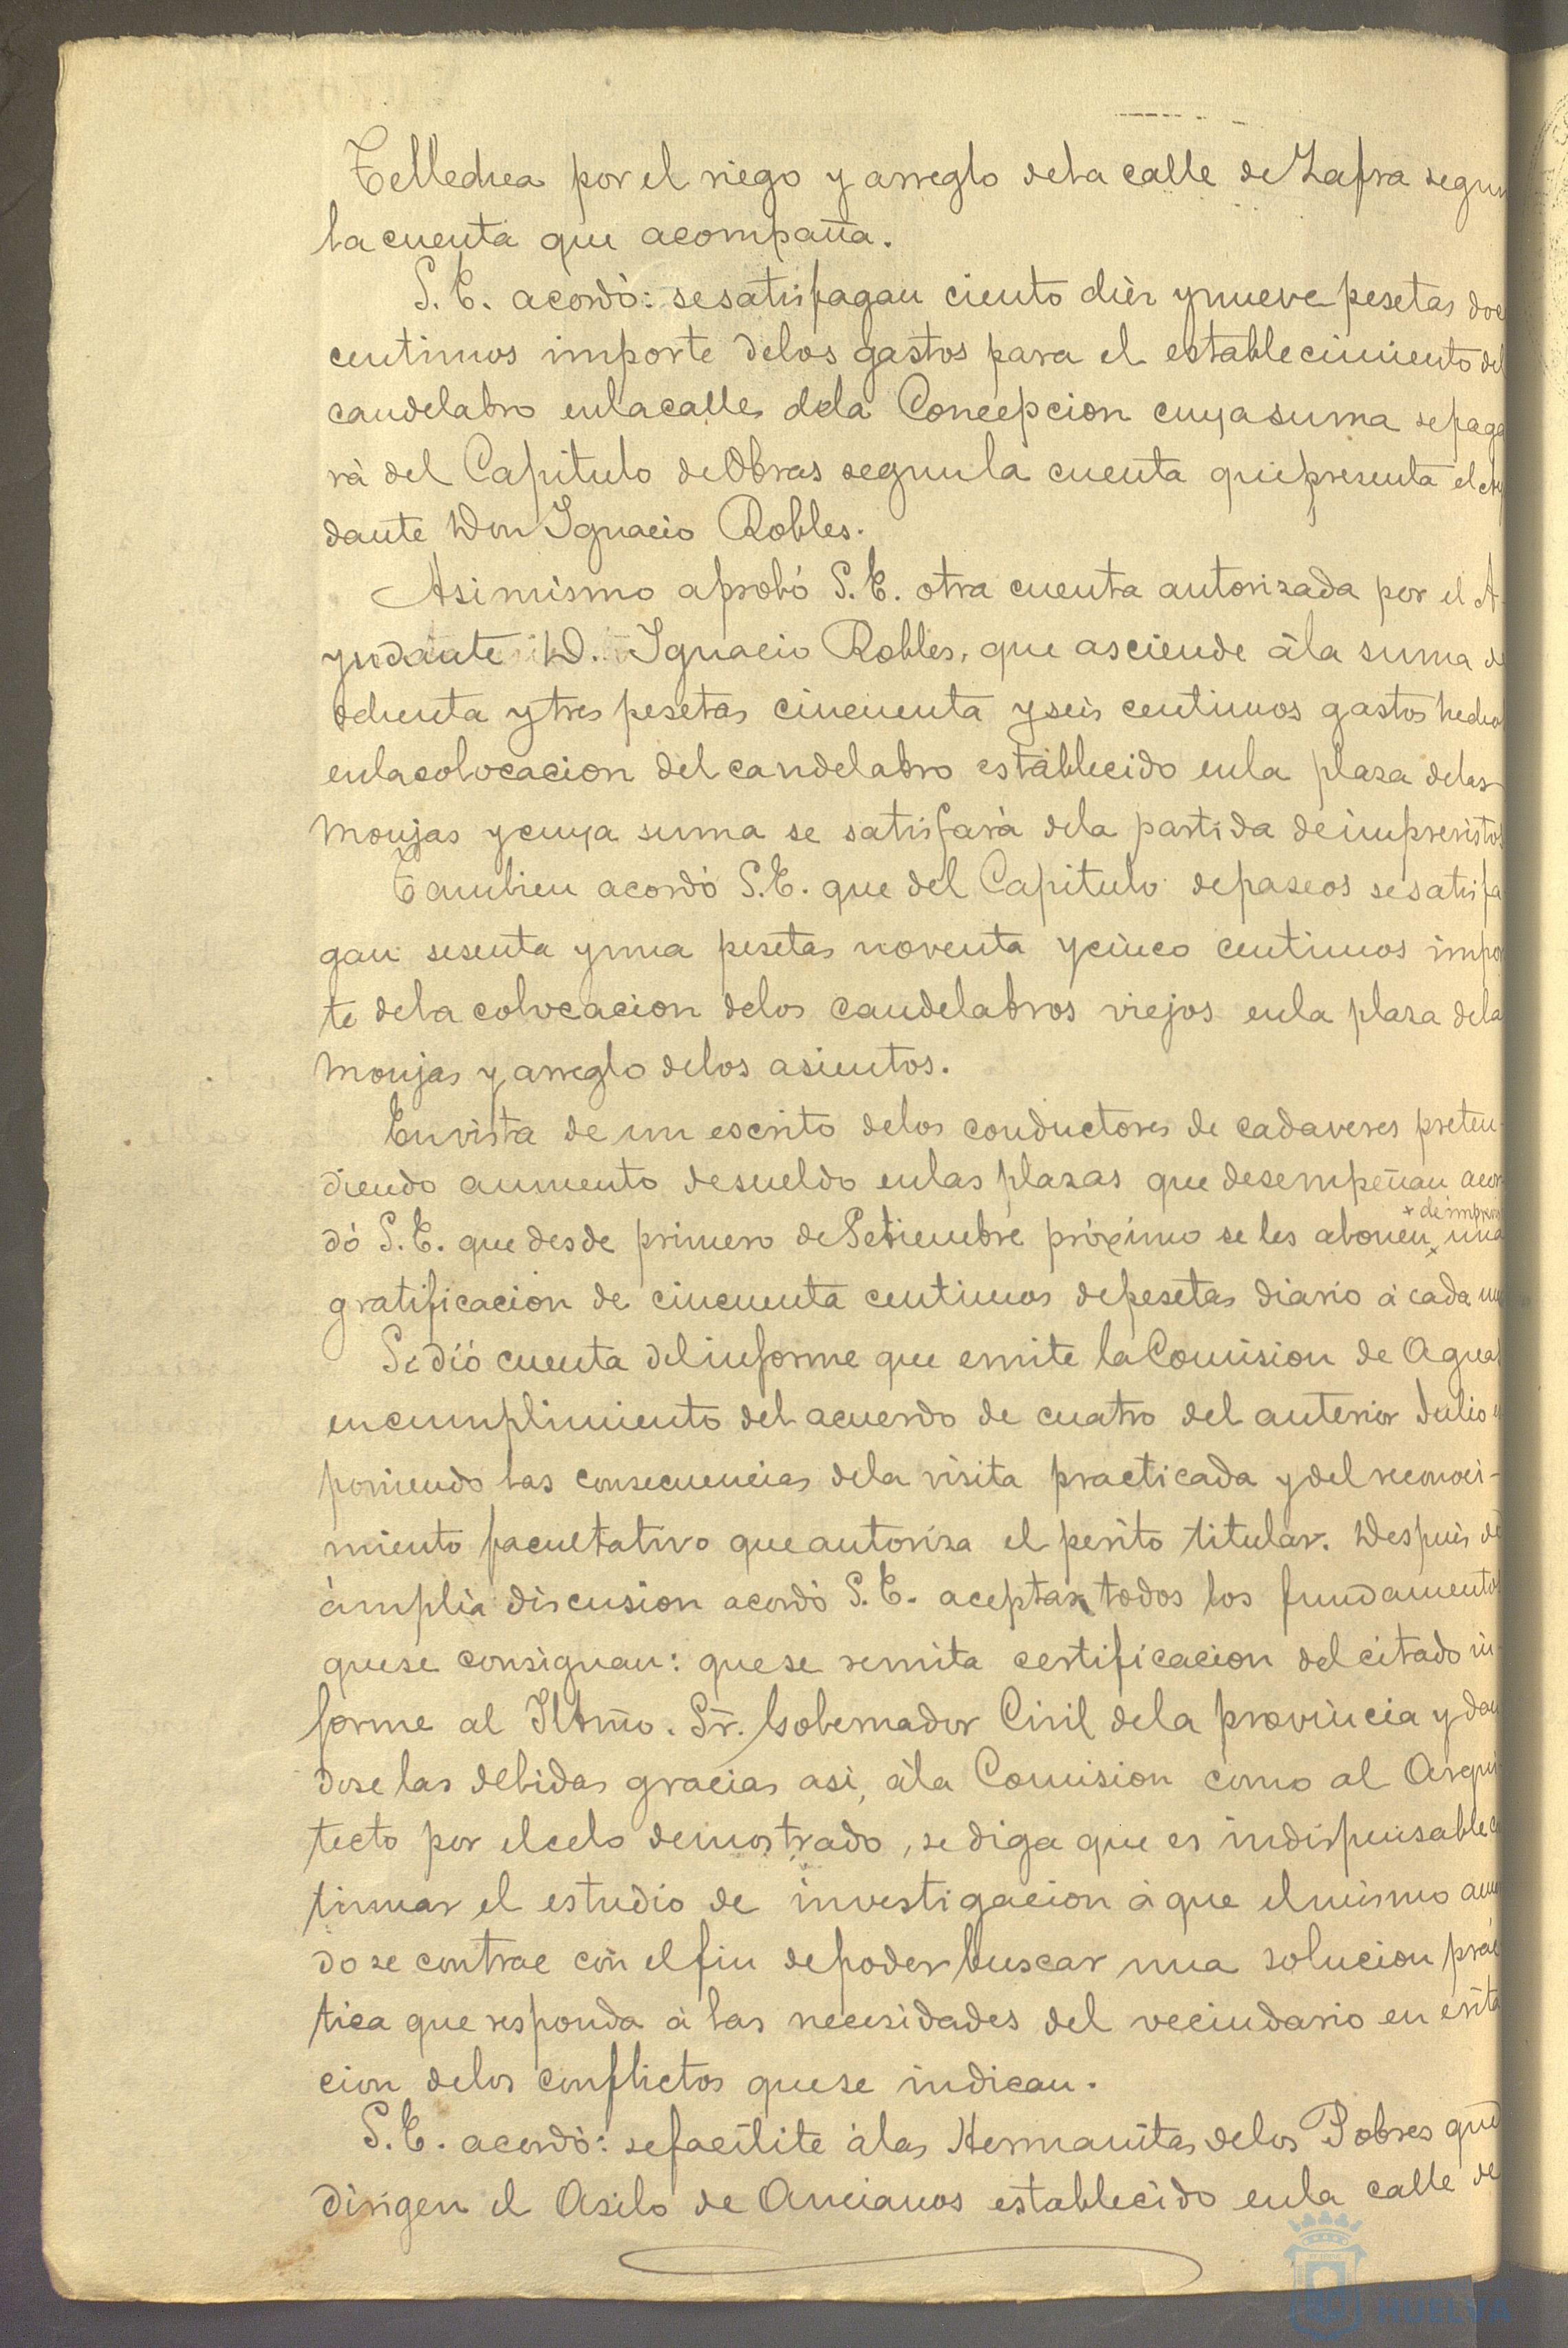 Tellechea por el riego y arreglo dela calle de Zafra segun
la cuenta que acompaña.
S. E. acordó: sesatisfagan ciento diez ynueve pesetas doce
centimos importe delos gastos para el establecimiento del
candelabro enlacalle dela Concepcion cuyasuma sepaga
rá del Capitulo deObras segunla cuenta quepresenta el Ayu
dante Don Ignacio Robles.
Asimismo aprobó S. E. otra cuenta autorizada por el A-
yudante D. Ignacio Robles, que asciende ála suma de
ochenta ytres pesetas cincuenta yseis centimos gastos hechos
enlacolocacion del candelabro establecido enla plaza delas
Monjas ycuya suma se satisfará dela partida deimprevistos
Tambien acordó S.E. que del Capitulo depaseos sesatisfa
gan sesenta yuna pesetas noventa ycinco centimos impor
te dela colocacion delos candelabros viejos enla plaza delas
Monjas y arreglo delos asientos.
Envista de un escrito delos conductores de cadaveres preten-
diendo aumento desueldo enlas plazas que desempeñan acor
+ de imprevis
dó S.E. que desde primero deSetiembre próximo se les abonen + una
gratificacion de cincuenta centimos depesetas diario á cada uno
Se dió cuenta delinforme que emite laComision de Aguas
encumplimiento del acuerdo de cuatro del anterior Julio
poniendo las consecuencias dela visita practicada ydel reconoci-
miento facultativo queautoriza el perito titular. Despues de
ámplia discusion acordó S.E. aceptar todos los fundamentos
quese consignan: quese remita certificacion del citado in-
forme al Iltmo. Sr. Gobernador Civil dela provincia y dan
dose las debidas gracias asi, ála Comision como al Arqui
tecto por elcelo demostrado, se diga que es indispensable con
tinuar el estudio de investigacion á que elmismo acuer
do se contrae con elfin depoder buscar una solucion prác
tica que responda á las necesidades del vecindario en evita
cion delos conflictos quese indican.
S.E. acordó: sefacilite álas Hermanitas delos Pobres que
dirigen el Asilo de Ancianos establecido enla calle de
HUELVA